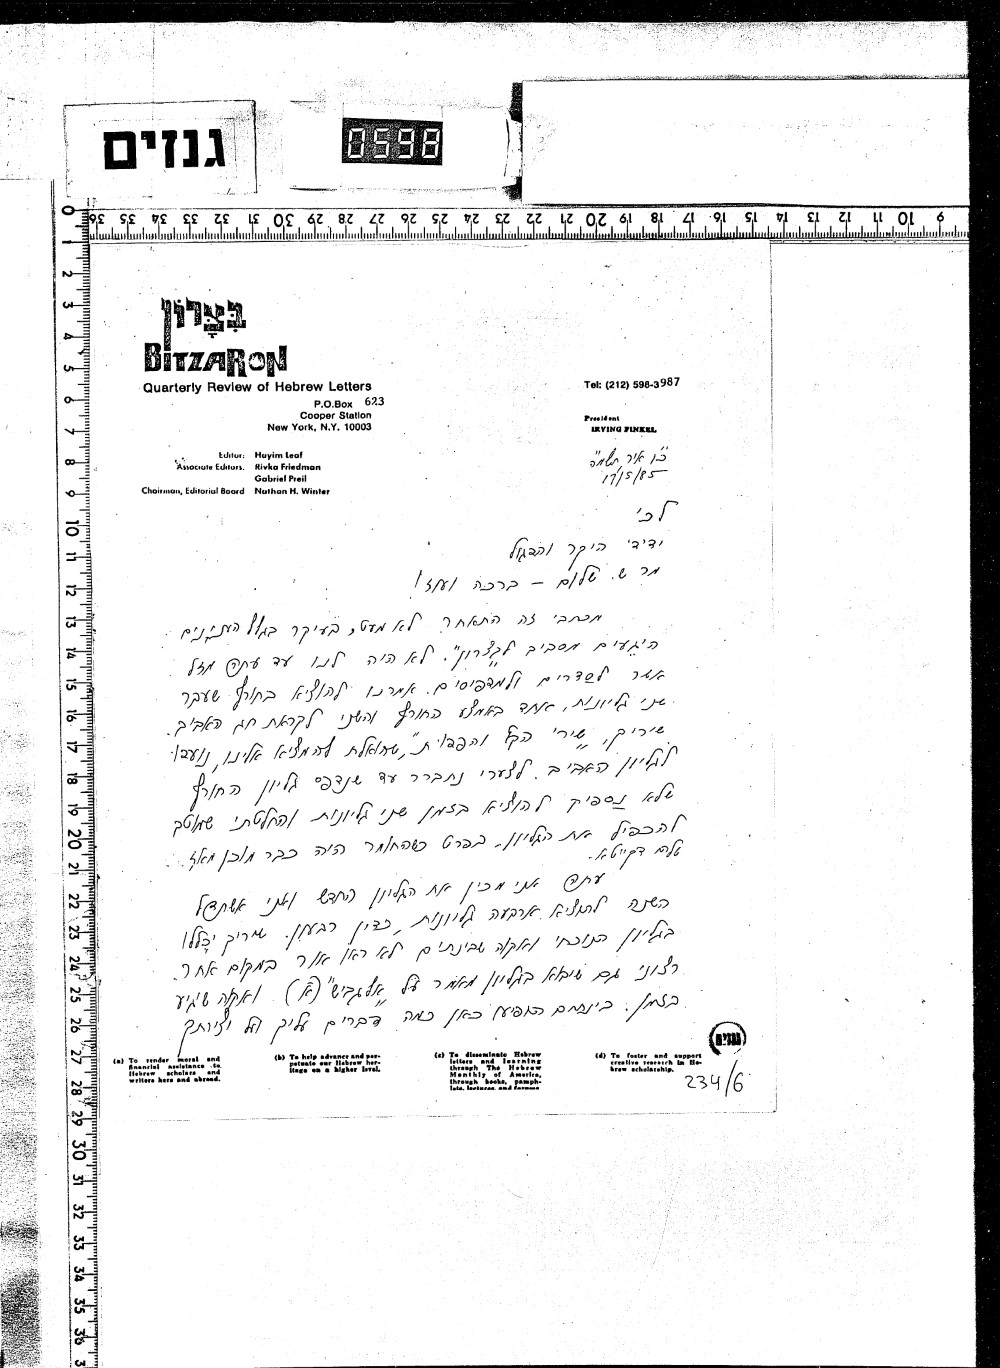 גנזים
0598
בִּצָּרוֹן
BITZARON
Quarterly Review of Hebrew Letters
P.O.Box 623
Cooper Station
New York, N.Y. 10003
Tel: (212) 598-3987
President
IRVING FINKEL
Editor: Hayim Leaf
Associate Editors. Rivka Friedman
Gabriel Preil
Chairman, Editorial Board Nathan H. Winter
כ"ו אייר תשמ"ה
17/5/85
לכ'
ידידי היקר והמגול
מר ש. שלום – ברכה ועוז!
מכתבי זה התאחר לא מעט, בעיקר בגלל העניינים
היגעים מסביב ל"בצרון". לא היה לנו עד עתה מזל
אשר לסדרים ולמדפיסים. אמרנו להוציא בחורף שעבר
שני גליונות, אחד באמצע החורף והשני לקראת חג האביב.
שירים, "שירי הקץ", שהואלת להמציא אלינו, נועדו
לגליון האביב. לצערי נתברר עד שנדפס גליון החורף
שלא נספיק להוציא בזמן שני גליונות והחלטתי שמוטב
להכפיל את הגליון, בפרט כשהחומר היה כבר מוכן מאז.
עתה אני מכין את הגליון החדש ואני אשתדל
השנה להוציא ארבעה גליונות, כדין רבעון. שיריך יכללו
בגליון הנוכחי ואקוה שבינתיים לא ראו אור במקום אחר.
רצוני גם שיבוא בגליון מאמר על "אלגביש" (א) ואקוה שיגיע
בזמן. בינתים הופיעו כאן כמה דברים עליך ועל יצירותיך
גנזים
(a) To render moral and
financial assistance to
Hebrew scholars and
writers here and abroad.
(b) To help advance and per-
petuate our Hebrew her-
itage on a higher level.
(c) To disseminate Hebrew
letters and learning
through The Hebrew
Monthly of America,
through books, pamph-
lets, lectures and forums
(d) To foster and support
creative research in He-
brew scholarship.
234/6